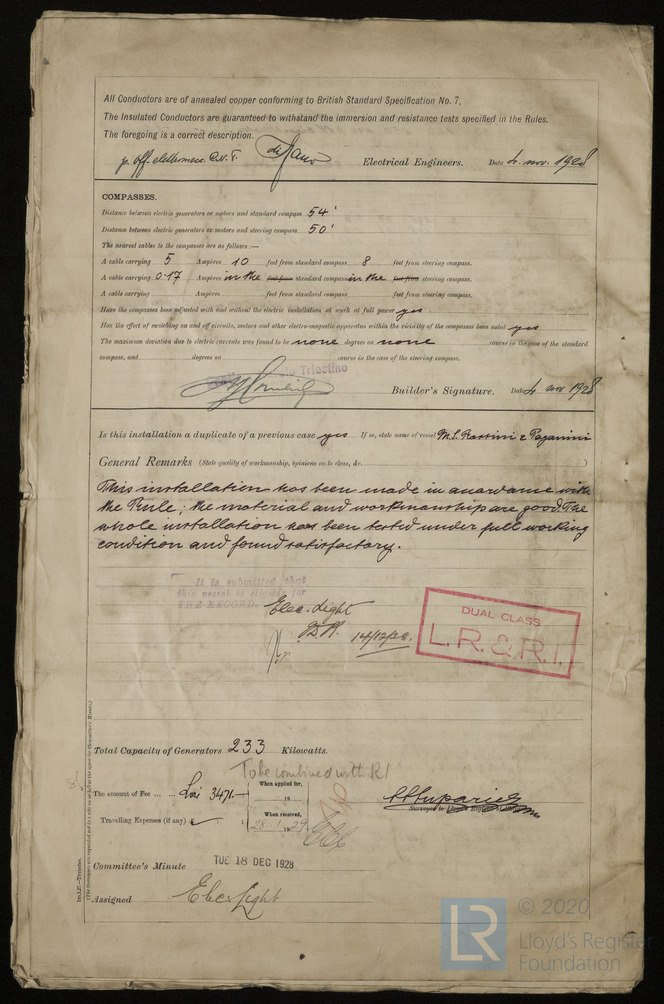 All Conductors are of annealed copper conforming to British Standard Specification No. 7.
The Insulated Conductors are guaranteed to withstand the immersion and resistance tests specified in the Rules.
The foregoing is a correct description.
p. Off. Electrical Engineers. Date 4. nov. 1928
COMPASSES.
Distance between electric generators or motors and standard compass 54'
Distance between electric generators or motors and steering compass 50'
The nearest cables to the compasses are as follows:—
A cable carrying 5 Ampères 10 feet from standard compass 8 feet from steering compass.
A cable carrying 0.17 Ampères in the feet from standard compass in the feet from steering compass.
A cable carrying Ampères feet from standard compass feet from steering compass.
Have the compasses been adjusted with and without the electric installation at work at full power yes
Has the effect of switching on and off circuits, motors and other electro-magnetic apparatus within the vicinity of the compasses been noted yes
The maximum deviation due to electric currents was found to be none degrees on none course in the case of the standard
compass, and degrees on course in the case of the steering compass.
Triestino
Builder's Signature. Date 4 nov 1928
Is this installation a duplicate of a previous case yes If so, state name of vessel M.S. Rossini & Paganini
General Remarks (State quality of workmanship, opinions as to class, &c.)
This installation has been made in accordance with
the Rule; the material and workmanship are good. The
whole installation has been tested under full working
condition and found satisfactory.
It is submitted that
this vessel is eligible for
THE RECORD. Elec. Light
14/12/28.
DUAL CLASS
L.R. & R.I.
Total Capacity of Generators 233 Kilowatts.
To be combined with RI
The amount of Fee ... ... Lai 3471.- When applied for,
19
When received,
Travelling Expenses (if any) £ 28.1.1929
Surveyor to
Committee's Minute TUE 18 DEC 1928
Assigned Elec Light
Im.1.T.—Transfer.
(The Surveyors are requested not to write on or below the space for Committee's Minute.)
LR
© 2020
Lloyd's Register
Foundation